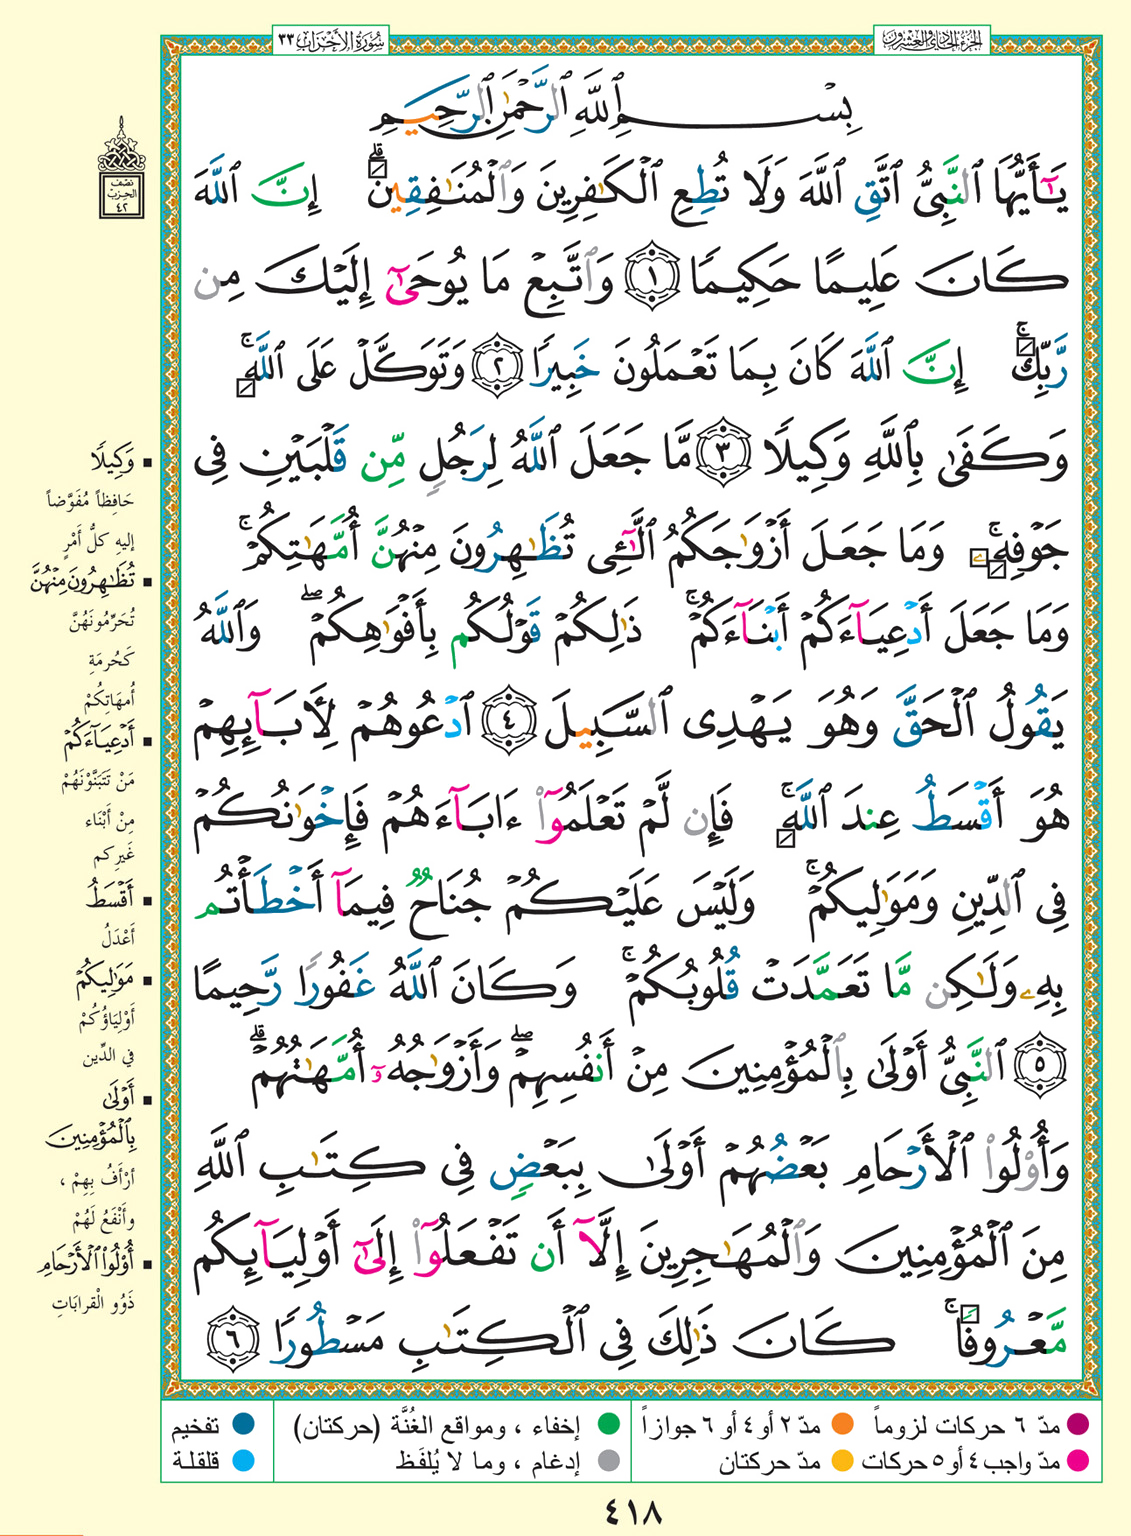 الجزء الحادي والعشرون
سُورَةُ الأَحْزَابِ ٣٣
بِسْمِ ٱللَّهِ ٱلرَّحْمَٰنِ ٱلرَّحِيمِ
يَٰٓأَيُّهَا ٱلنَّبِىُّ ٱتَّقِ ٱللَّهَ وَلَا تُطِعِ ٱلْكَٰفِرِينَ وَٱلْمُنَٰفِقِينَ ۗ إِنَّ ٱللَّهَ
كَانَ عَلِيمًا حَكِيمًا ١ وَٱتَّبِعْ مَا يُوحَىٰٓ إِلَيْكَ مِن
رَّبِّكَ ۚ إِنَّ ٱللَّهَ كَانَ بِمَا تَعْمَلُونَ خَبِيرًا ٢ وَتَوَكَّلْ عَلَى ٱللَّهِ ۚ
وَكَفَىٰ بِٱللَّهِ وَكِيلًا ٣ مَّا جَعَلَ ٱللَّهُ لِرَجُلٍ مِّن قَلْبَيْنِ فِى
جَوْفِهِۦ ۚ وَمَا جَعَلَ أَزْوَٰجَكُمُ ٱلَّٰٓـِٔى تُظَٰهِرُونَ مِنْهُنَّ أُمَّهَٰتِكُمْ ۚ
وَمَا جَعَلَ أَدْعِيَآءَكُمْ أَبْنَآءَكُمْ ۚ ذَٰلِكُمْ قَوْلُكُم بِأَفْوَٰهِكُمْ ۖ وَٱللَّهُ
يَقُولُ ٱلْحَقَّ وَهُوَ يَهْدِى ٱلسَّبِيلَ ٤ ٱدْعُوهُمْ لِأَبَآئِهِمْ
هُوَ أَقْسَطُ عِندَ ٱللَّهِ ۚ فَإِن لَّمْ تَعْلَمُوٓا۟ ءَابَآءَهُمْ فَإِخْوَٰنُكُمْ
فِى ٱلدِّينِ وَمَوَٰلِيكُمْ ۚ وَلَيْسَ عَلَيْكُمْ جُنَاحٌ فِيمَآ أَخْطَأْتُم
بِهِۦ وَلَٰكِن مَّا تَعَمَّدَتْ قُلُوبُكُمْ ۚ وَكَانَ ٱللَّهُ غَفُورًا رَّحِيمًا
٥ ٱلنَّبِىُّ أَوْلَىٰ بِٱلْمُؤْمِنِينَ مِنْ أَنفُسِهِمْ ۖ وَأَزْوَٰجُهُۥٓ أُمَّهَٰتُهُمْ ۗ
وَأُو۟لُوا۟ ٱلْأَرْحَامِ بَعْضُهُمْ أَوْلَىٰ بِبَعْضٍ فِى كِتَٰبِ ٱللَّهِ
مِنَ ٱلْمُؤْمِنِينَ وَٱلْمُهَٰجِرِينَ إِلَّآ أَن تَفْعَلُوٓا۟ إِلَىٰٓ أَوْلِيَآئِكُم
مَّعْرُوفًا ۚ كَانَ ذَٰلِكَ فِى ٱلْكِتَٰبِ مَسْطُورًا ٦
نصف
الحزب
٤٢
وَكِيلًا
حَافِظاً مُفَوَّضاً
إليهِ كلُّ أَمْرٍ
تُظَٰهِرُونَ مِنْهُنَّ
تُحَرِّمُونَهُنَّ
كَحُرمَةِ
أُمهَاتِكُمْ
أَدْعِيَآءَكُمْ
مَنْ تَتَبَنَّوْنَهُمْ
مِنْ أَبْنَاء
غَيرِكم
أَقْسَطُ
أَعْدَلُ
مَوَٰلِيكُمْ
أَوْلِيَاؤُكُمْ
في الدِّين
أَوْلَىٰ
بِٱلْمُؤْمِنِينَ
أرْأَفُ بِهِمْ ،
وأَنْفَعُ لَهُمْ
أُو۟لُوا۟ ٱلْأَرْحَامِ
ذَوُو الْقَرابَاتِ
مدّ ٦ حركات لزوماً مدّ ٢ أو ٤ أو ٦ جوازاً إخفاء ، ومواقع الغُنَّة (حركتان) تفخيم
مدّ واجب ٤ أو ٥ حركات مدّ حركتان إدغام ، وما لا يُلفَظ قلقلة
٤١٨